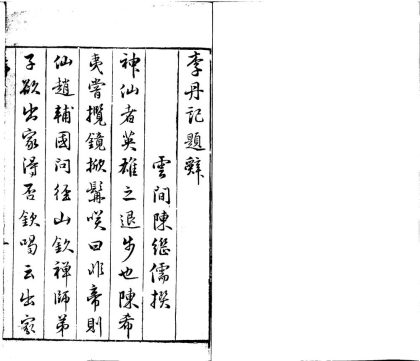 李丹記題辭
雲間陳繼儒撰
神仙者英雄之退步也陳希
夷嘗攬鏡掀髯咲曰非帝則
仙趙輔國問徑山欽禪師弟
子欲出家得否欽喝云出家